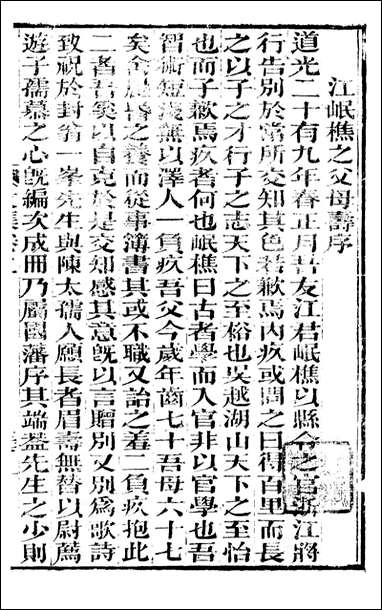 江岷樵之父母壽序
道光二十有九年春正月吾友江君岷樵以縣令之官浙江將
行告別於當所交知其色若歉焉內疚或問之曰得百里而長
之以子之才行子之志天下之至俗也吳越湖山天下之至怡
也而子歉焉疚者何也岷樵曰古者學而入官非以官學也吾
智術短淺無以澤人一負疚吾父今歲年齒七十吾母六十七
矣舍晨昏之養而從事簿書其或不職又詒之羞二負疚抱此
二者吾奚以自克於是交知感其意旣以言贈別又別爲歌詩
致祝於封翁一峯先生與陳太孺人願長者眉壽無替以尉薦
遊子孺慕之心旣編次成冊乃屬國藩序其端蓋先生之少則